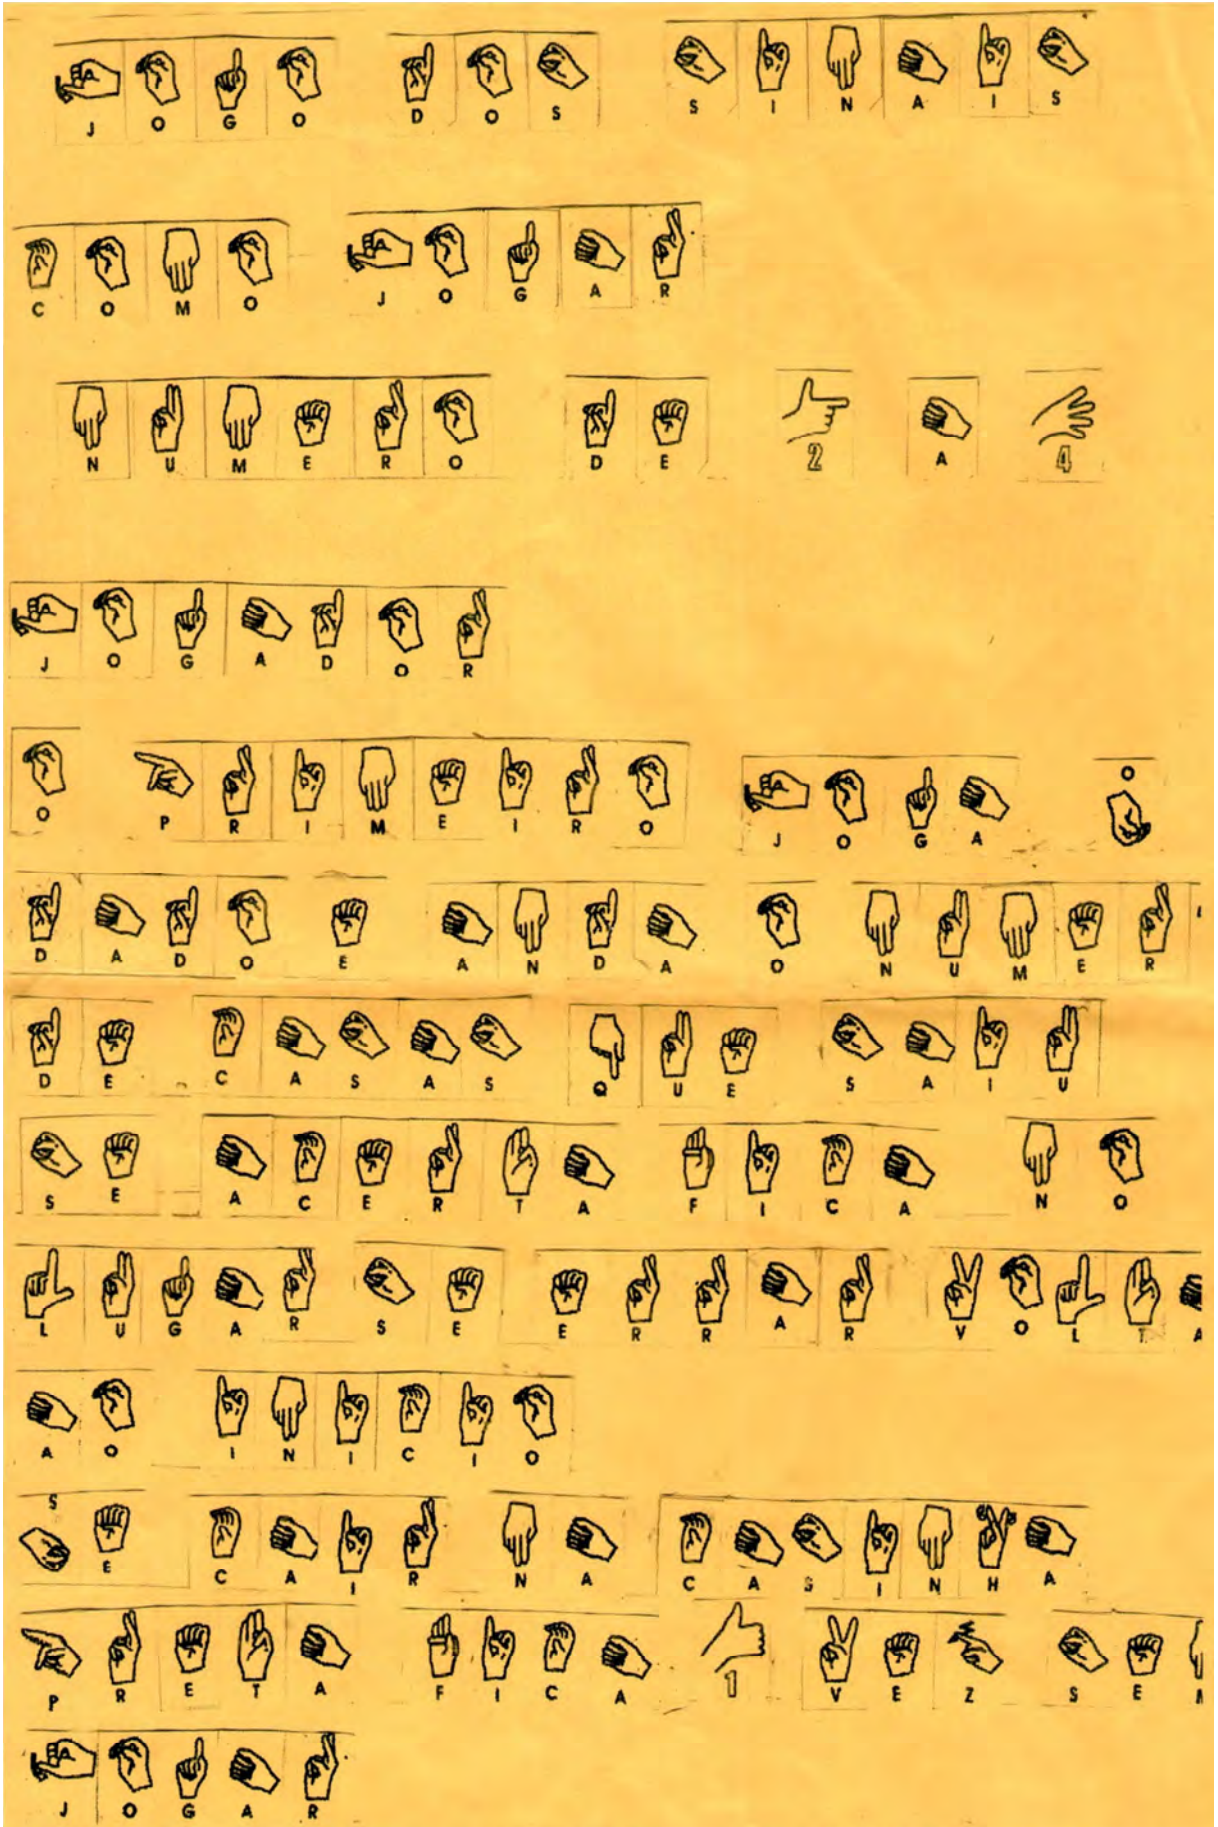 JOGO DOS SINAIS
COMO JOGAR
NUMERO DE 2 A 4
JOGADOR
O PRIMEIRO JOGA O
DADO E ANDA O NUMER
DE CASAS QUE SAIU
SE ACERTA FICA NO
LUGAR SE ERRAR VOLTA
AO INICIO
SE CAIR NA CASINHA
PRETA FICA 1 VEZ SEM
JOGAR